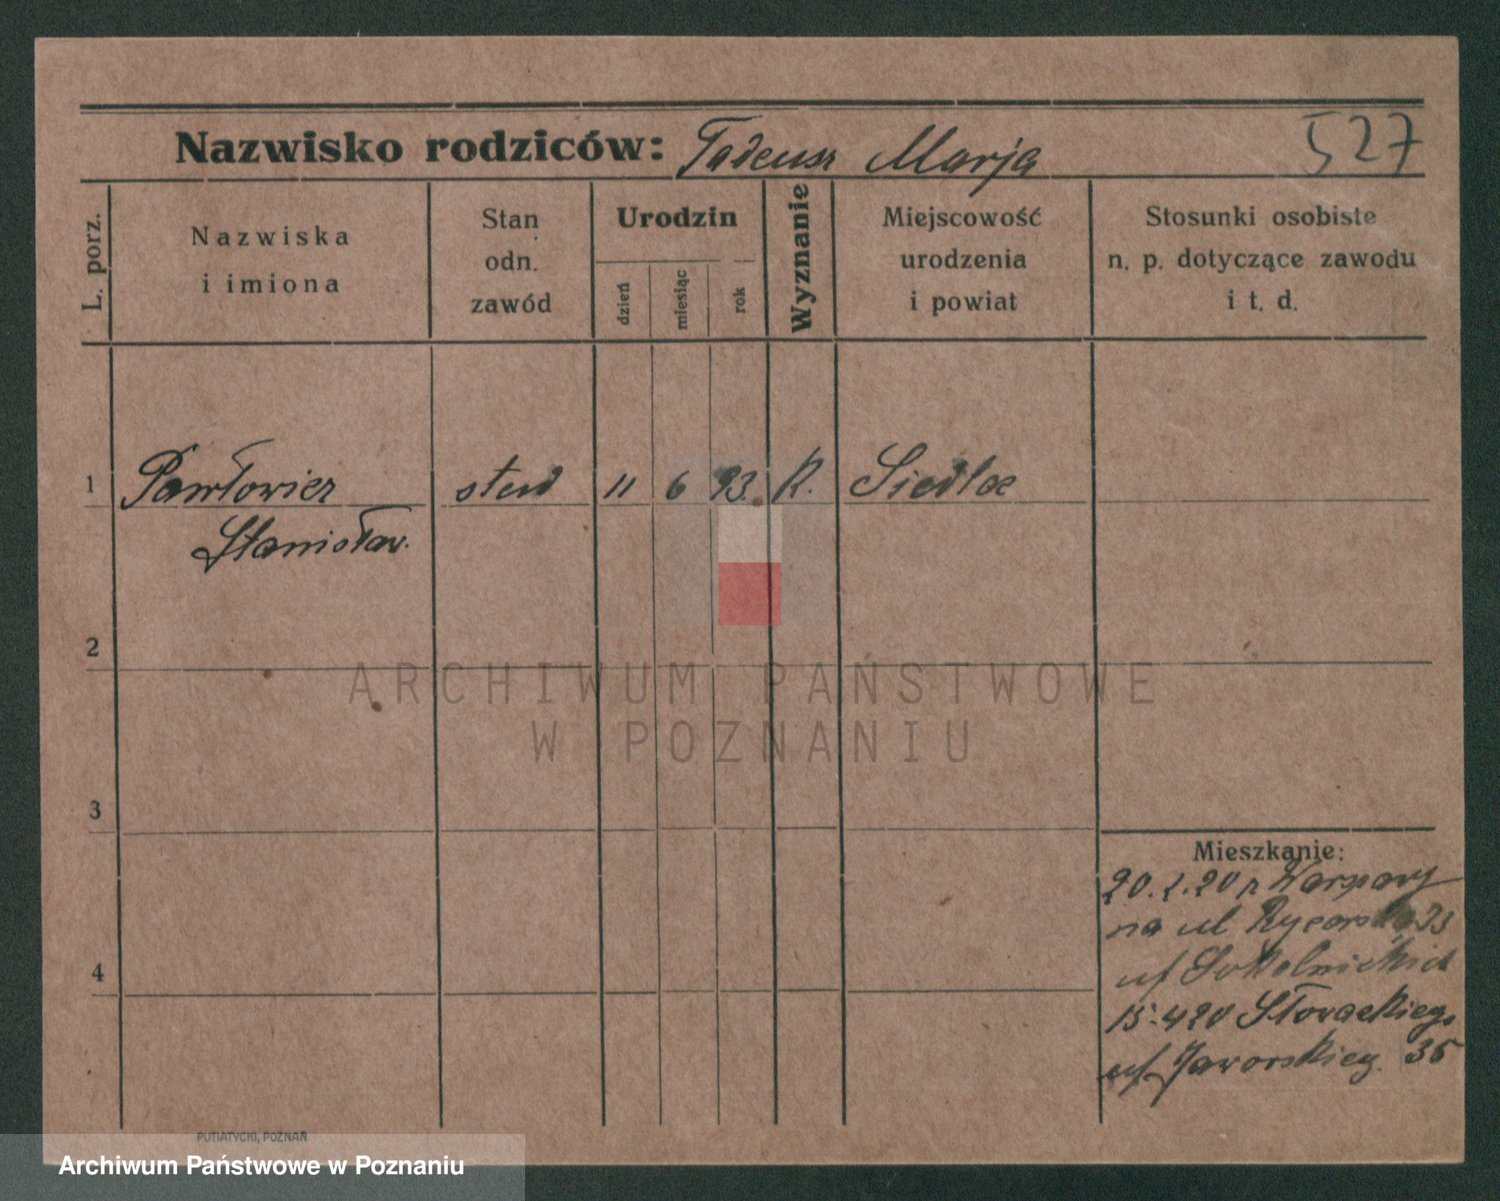 Nazwisko rodziców: Tadeusz Marja
527
L. porz.
Nazwiska
i imiona
Stan
odn.
zawód
Urodzin
dzień
miesiąc
rok
Wyznanie
Miejscowość
urodzenia
i powiat
Stosunki osobiste
n. p. dotyczące zawodu
i t. d.
1 Pawłowicz stud 11 6 93. R. Siedlce
Stanisław.
2
3
4
Mieszkanie:
20. 1. 20
na ul Rycerska
uf Sokolnickich
15.420 Słowackiego
uf Jaworskiej 35
PUTIATYCKI, POZNAŃ
ARCHIWUM PAŃSTWOWE
W POZNANIU
Archiwum Państwowe w Poznaniu